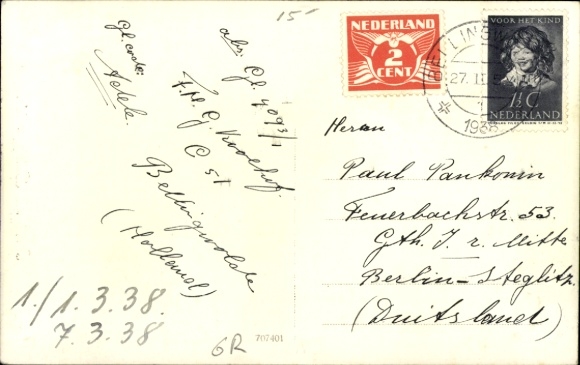 15-
Gl. code:
Adele.
abs. Gf 4093/1
F.H. G. Kroehof.
C 51
Bellingwolde
(Holland)
1./1.3.38.
7.3.38
GR
707401
NEDERLAND
2
CENT
VOOR HET KIND
1½ C
NEDERLAND
27. II
1938
Herrn
Paul Pankonin
Feuerbachstr. 53.
Gth. I. r. Mitte
Berlin-Steglitz.
(Duitsland)